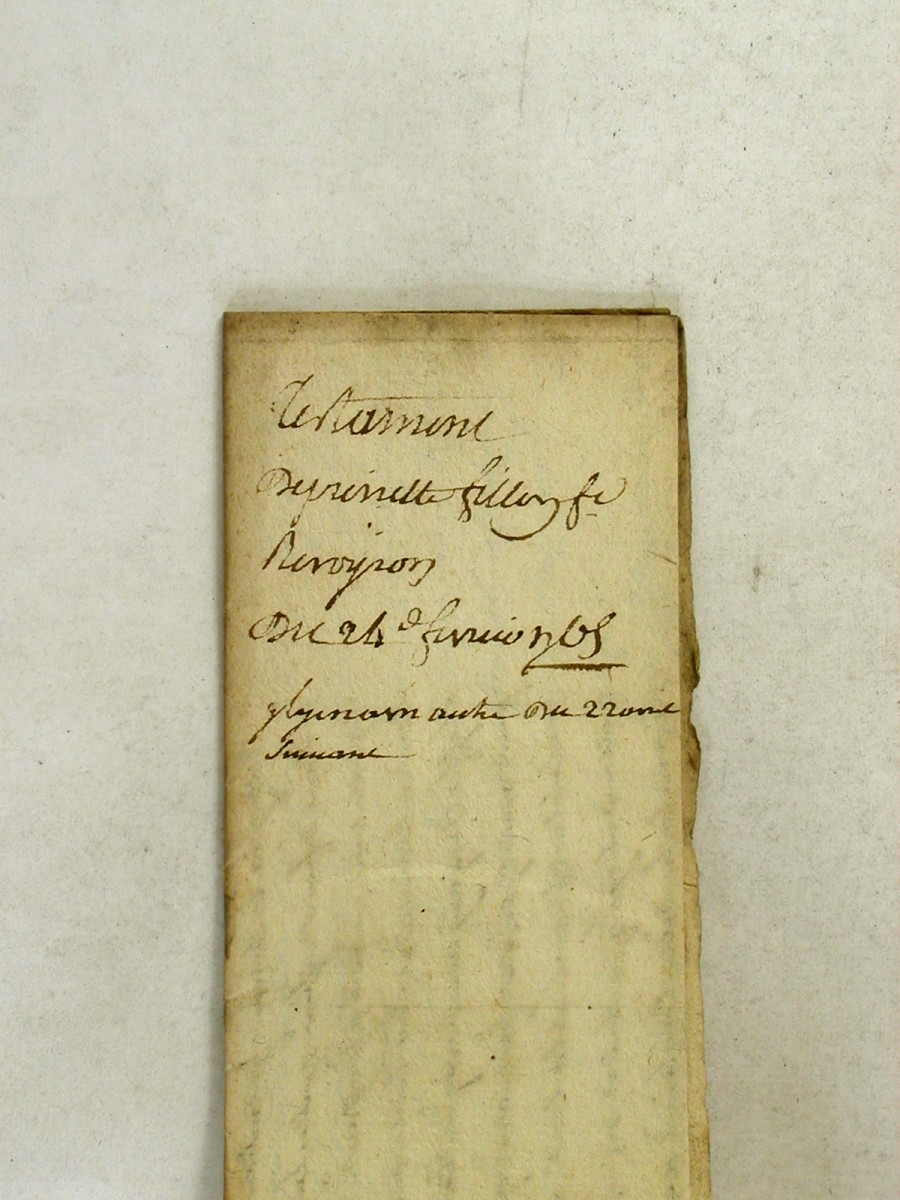 Testament
De pierrette fillon fe
Revoyron
Du 24e fevrier 1765
plus un autre Du 22 avril
Suivant